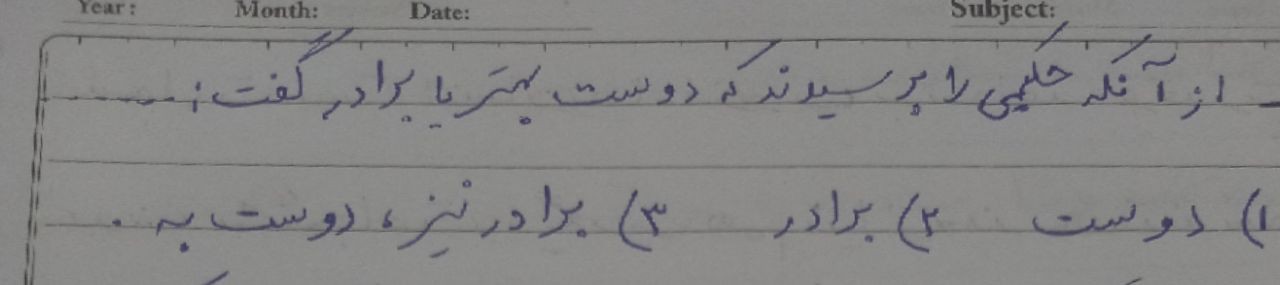 Year: Month: Date: Subject:
ـ از آنکه حکیمی را پرسیدند که دوست بهتر یا برادر گفت: ........
۱) دوست ۲) برادر ۳) برادر نیز، دوست به .